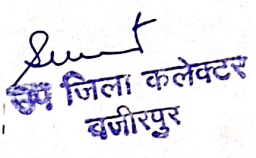 उप जिला कलेक्टर
बजीरपुर